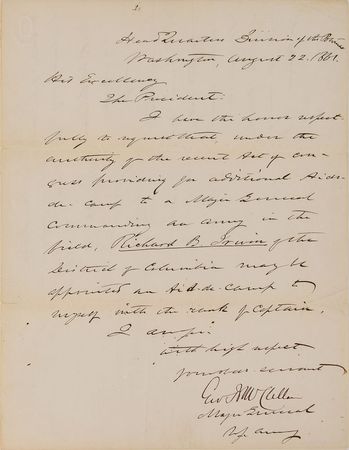 Head Quarters Division of the Potomac
Washington, August 22. 1861.
His Excellency
The President.
I have the honor respect-
fully to request that, under the
authority of the recent Act of Con-
gress providing for additional Aids-
de-camp to a Major General
commanding an army in the
field, Richard B. Irwin of the
District of Columbia may be
appointed an Aid-de-camp to
myself with the rank of Captain.
I am
With high respect
your obdt servant
Geo B McClellan
Major General
U.S. Army